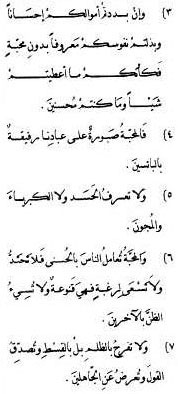 ٣) وإن بددتم أموالكم إحساناً
وبذلتم نفوسكم معروفاً بدون محبة
فكأنكم ما أعطيتم
شيئاً وما كنتم محسنين.
٤) فالمحبة صبورة على عبادنا رفيقة
بالبائسين.
٥) ولا تعرف الحسد ولا الكبرياء
والمجون.
٦) والمحبة تعامل الناس بالحسنى فلا تحتد
ولا تسعى لرغبة فهي قنوعة ولا تسيء
الظن بالآخرين.
٧) ولا تفرح بالظلم بل بالقسط وتصدق
القول وتعرض عن الجاهلين.